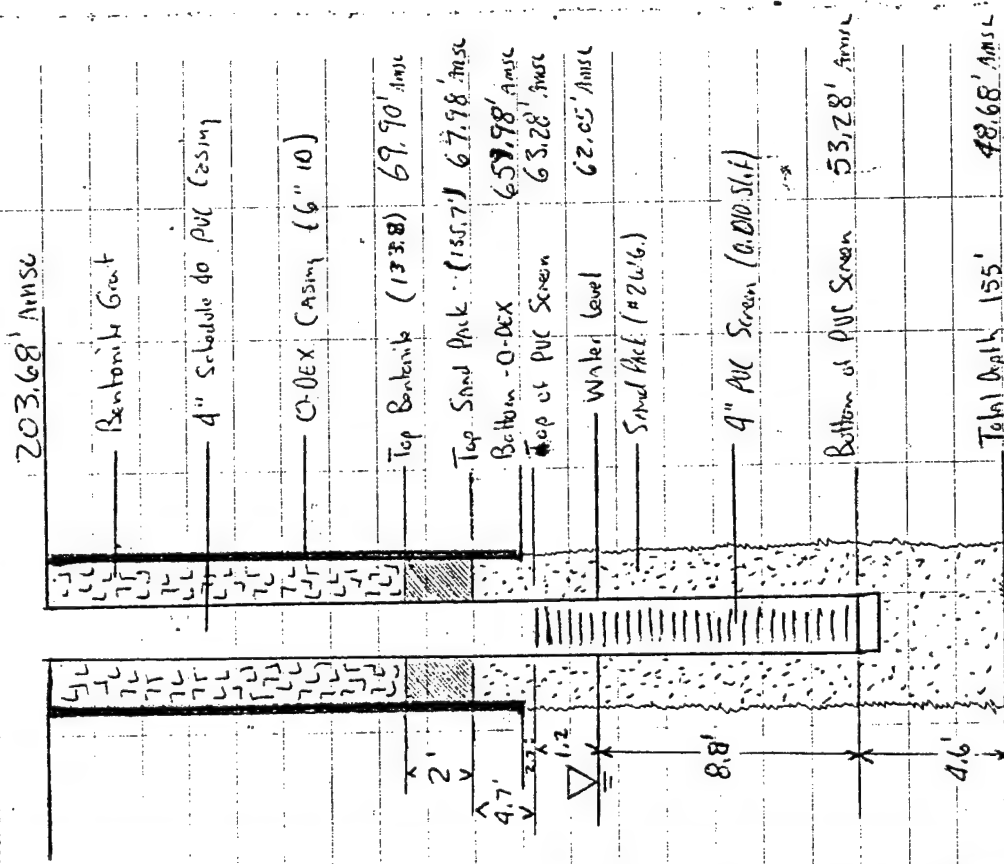 203.68' AMSL
Bentonite Grout
4" Schedule 40 PVC Casing
O-DEX Casing (6" ID)
Top Bentonite (133.8) 69.90' AMSL
Top Sand Pack (135.7') 67.98' AMSL
Bottom - O-DEX AMSL
Top of PVC Screen 63.28' AMSL
Water Level 62.05' AMSL
Sand Pack (#2W.G.)
4" PVC Screen (0.010 Slit)
Bottom of PVC Screen 53.28' AMSL
Total Depth 155' 48.68' AMSL
2'
4.7'
1.2
8.8'
4.6'